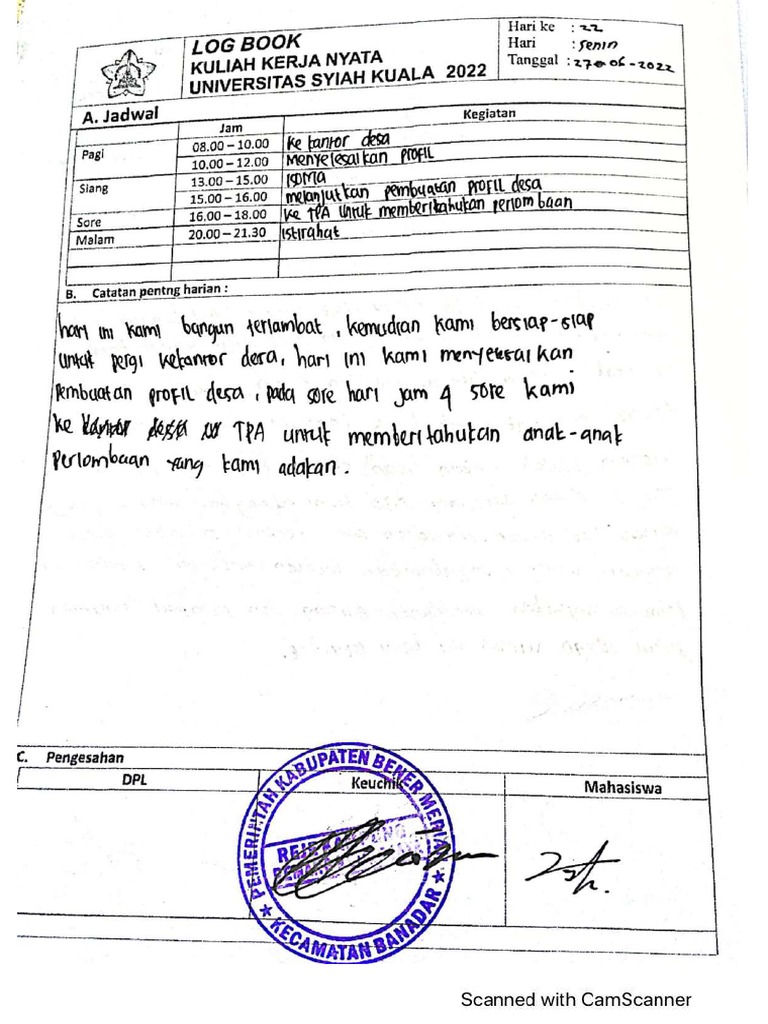 LOG BOOK
KULIAH KERJA NYATA
UNIVERSITAS SYIAH KUALA 2022
Hari ke : 22
Hari : Senin
Tanggal : 27-06-2022
A. Jadwal
Jam Kegiatan
Pagi 08.00 – 10.00 Ke kantor desa
10.00 – 12.00 Menyelesaikan profil
Siang 13.00 – 15.00 ISOMA
15.00 – 16.00 melanjutkan pembuatan profil desa
Sore 16.00 – 18.00 Ke TPA untuk memberitahukan perlombaan
Malam 20.00 – 21.30 Istirahat
B. Catatan pentng harian :
hari ini kami bangun terlambat, kemudian kami bersiap-siap
untuk pergi kekantor desa, hari ini kami menyelesaikan
pembuatan profil desa, pada sore hari jam 4 sore kami
ke kantor desa TPA untuk memberitahukan anak-anak
perlombaan yang kami adakan.
C. Pengesahan
DPL Keuchik Mahasiswa
PEMERINTAH KABUPATEN BENER MERIAH
KECAMATAN BANADAR
Scanned with CamScanner